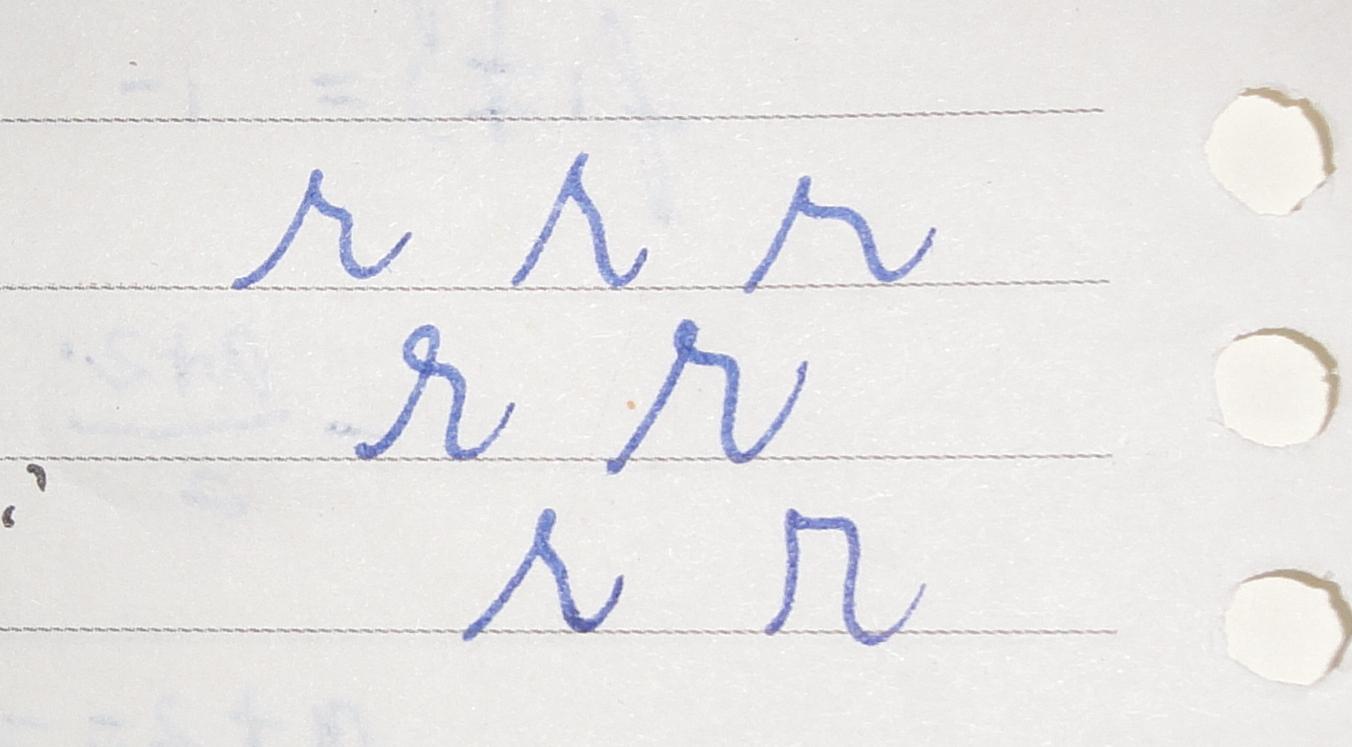 r r r
r r
r r